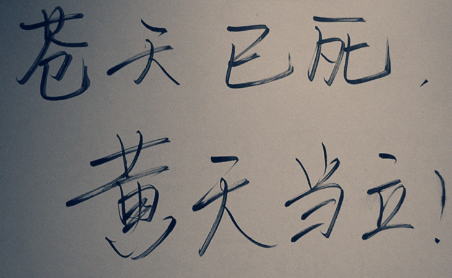 苍天已死,
黄天当立!